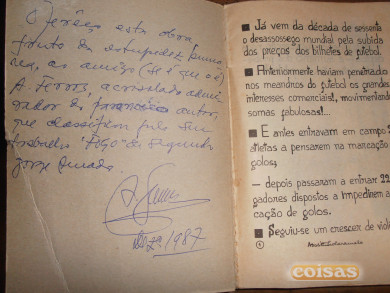 Ofereço esta obra
fruto da estupidez huma
na, ao amigo (se é que o é)
A. Ferros, acrisolado admi
rador de
que classificou pelo seu
trabalho "Fogo" de segundo
Jorge
Dezº 1987
Já vem da década de sessenta
o desassossego mundial pela subida
dos preços dos bilhetes de futebol.
Anteriormente haviam penetrado
nos meandros do futebol os grandes
interesses comerciais!, movimentando
somas fabulosas!...
E antes entravam em campo
atletas a pensarem na marcação
golos;
— depois passaram a entrar 22
gadores dispostos a impedirem a
cação de golos.
Seguiu-se um crescer de viol
coisas